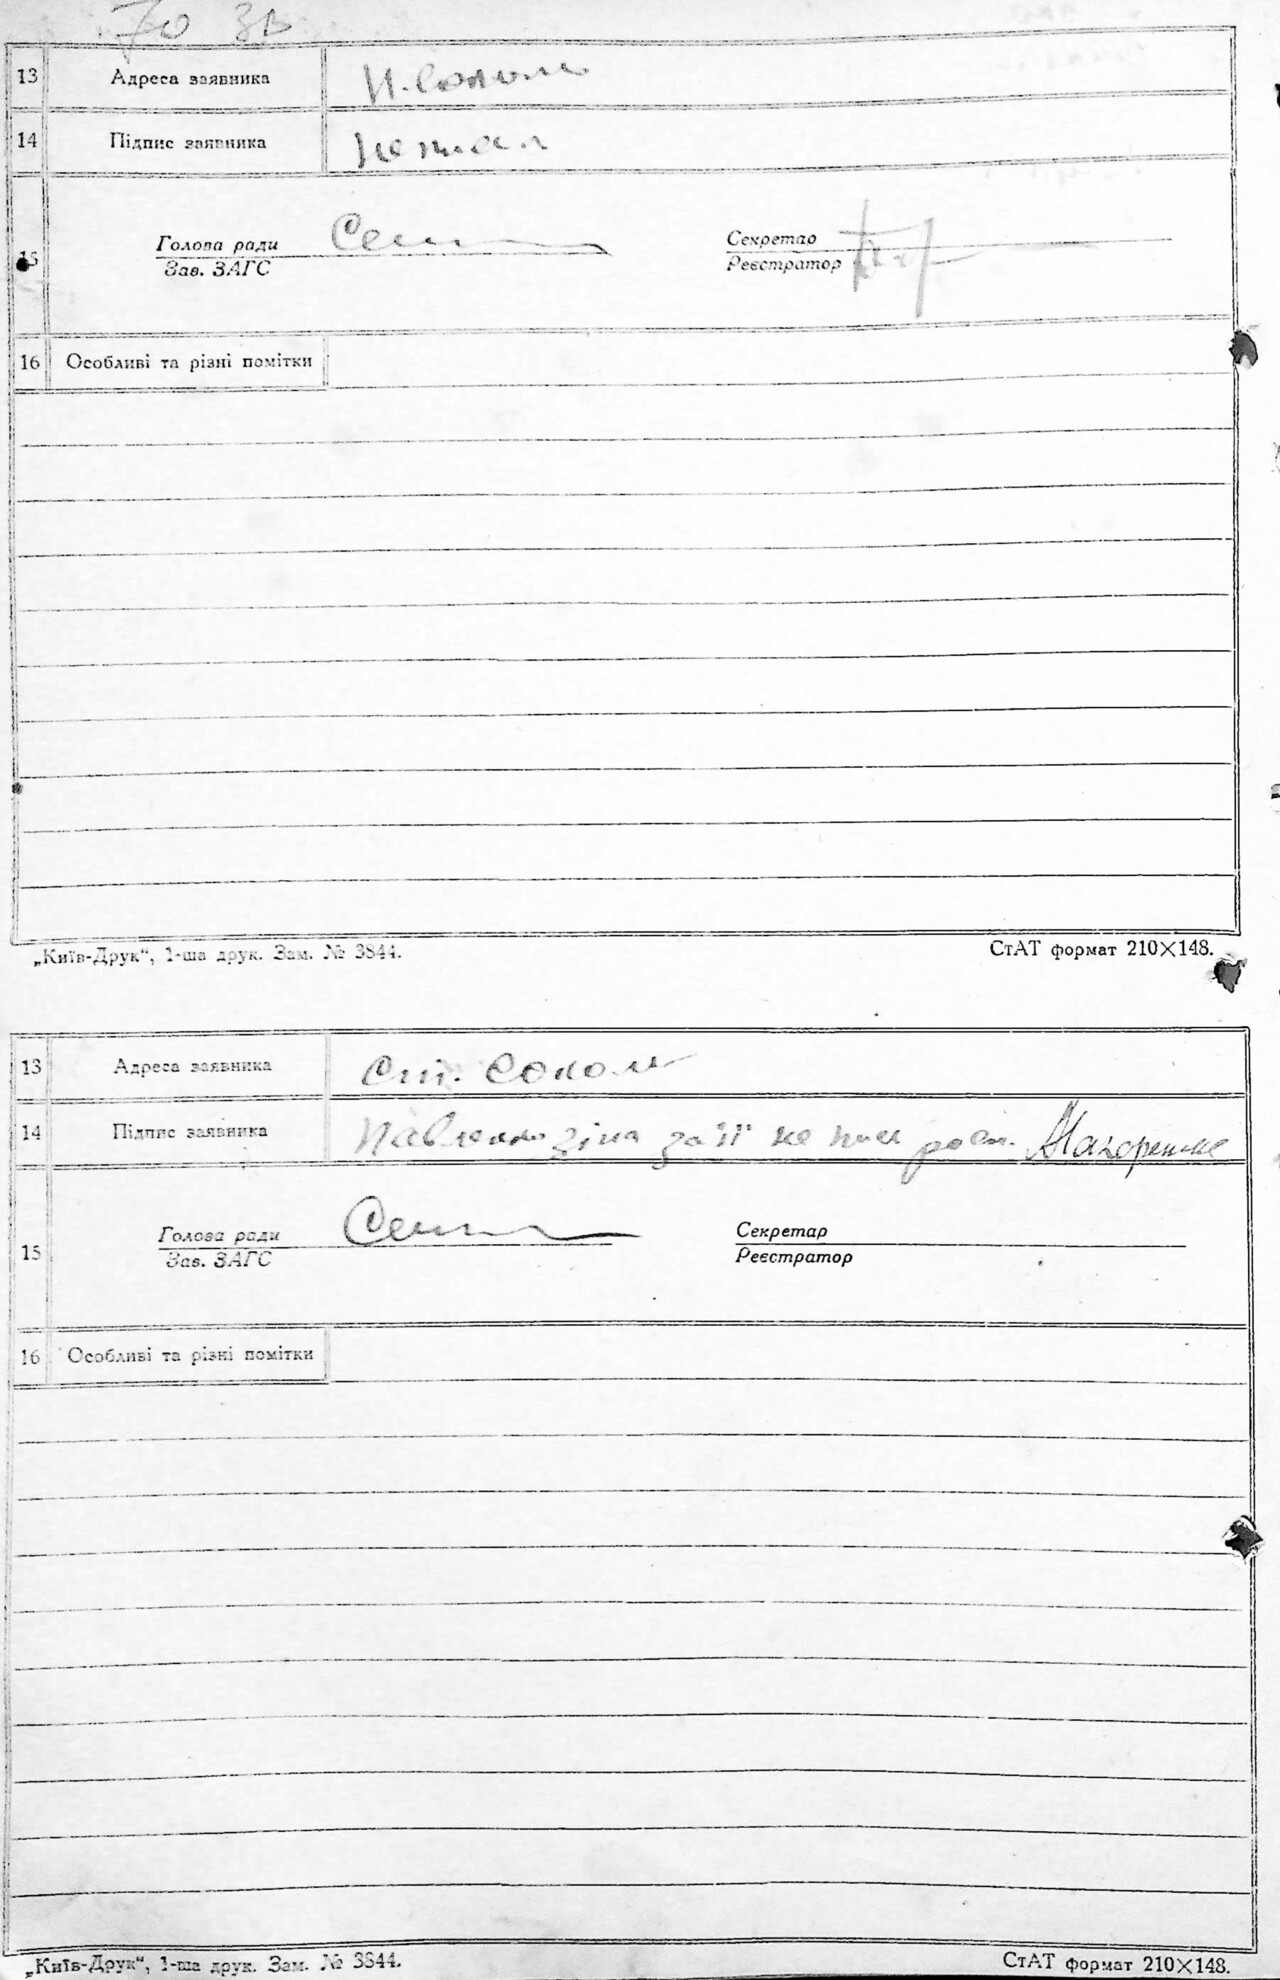 70 зв
13 Адреса заявника
14 Підпис заявника
15 Голова ради Секретар
Зав. ЗАГС Реєстратор
16 Особливі та різні помітки
„Київ-Друк“, 1-ша друк. Зам. № 3844. СтАТ формат 210×148.
13 Адреса заявника
14 Підпис заявника Павленко за її не
15 Голова ради Секретар
Зав. ЗАГС Реєстратор
16 Особливі та різні помітки
„Київ-Друк“, 1-ша друк. Зам. № 3844. СтАТ формат 210×148.